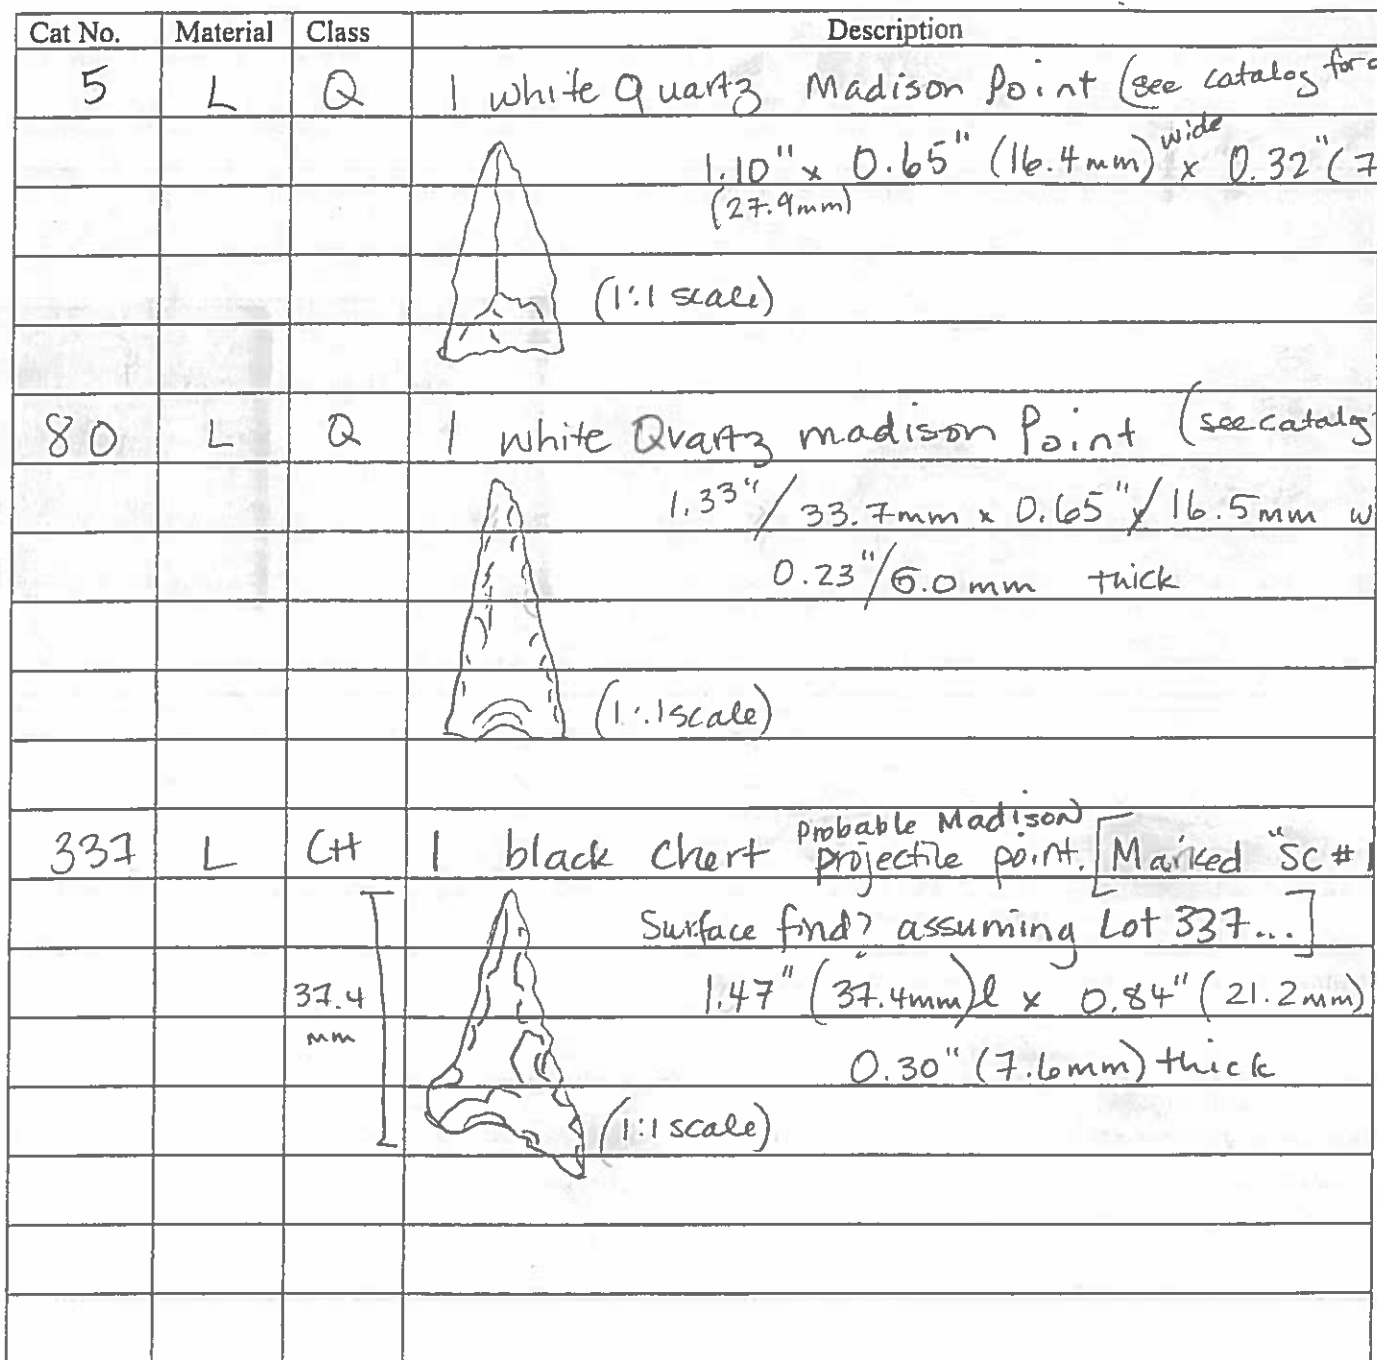 Cat No. Material Class Description
5 L Q 1 white Quartz Madison Point (see catalog for
1.10" x 0.65" (16.4mm) wide x 0.32" (7
(27.9mm)
(1:1 scale)
80 L Q 1 white Quartz madison Point (see catalog
1.33"/33.7mm x 0.65"/16.5mm w
0.23"/6.0mm thick
(1:1 scale)
337 L CH 1 black Chert Probable Madison projectile point. [Marked "SC #1
Surface find? assuming Lot 337...]
37.4 1.47" (37.4mm) l x 0.84" (21.2mm)
mm 0.30" (7.6mm) thick
(1:1 scale)